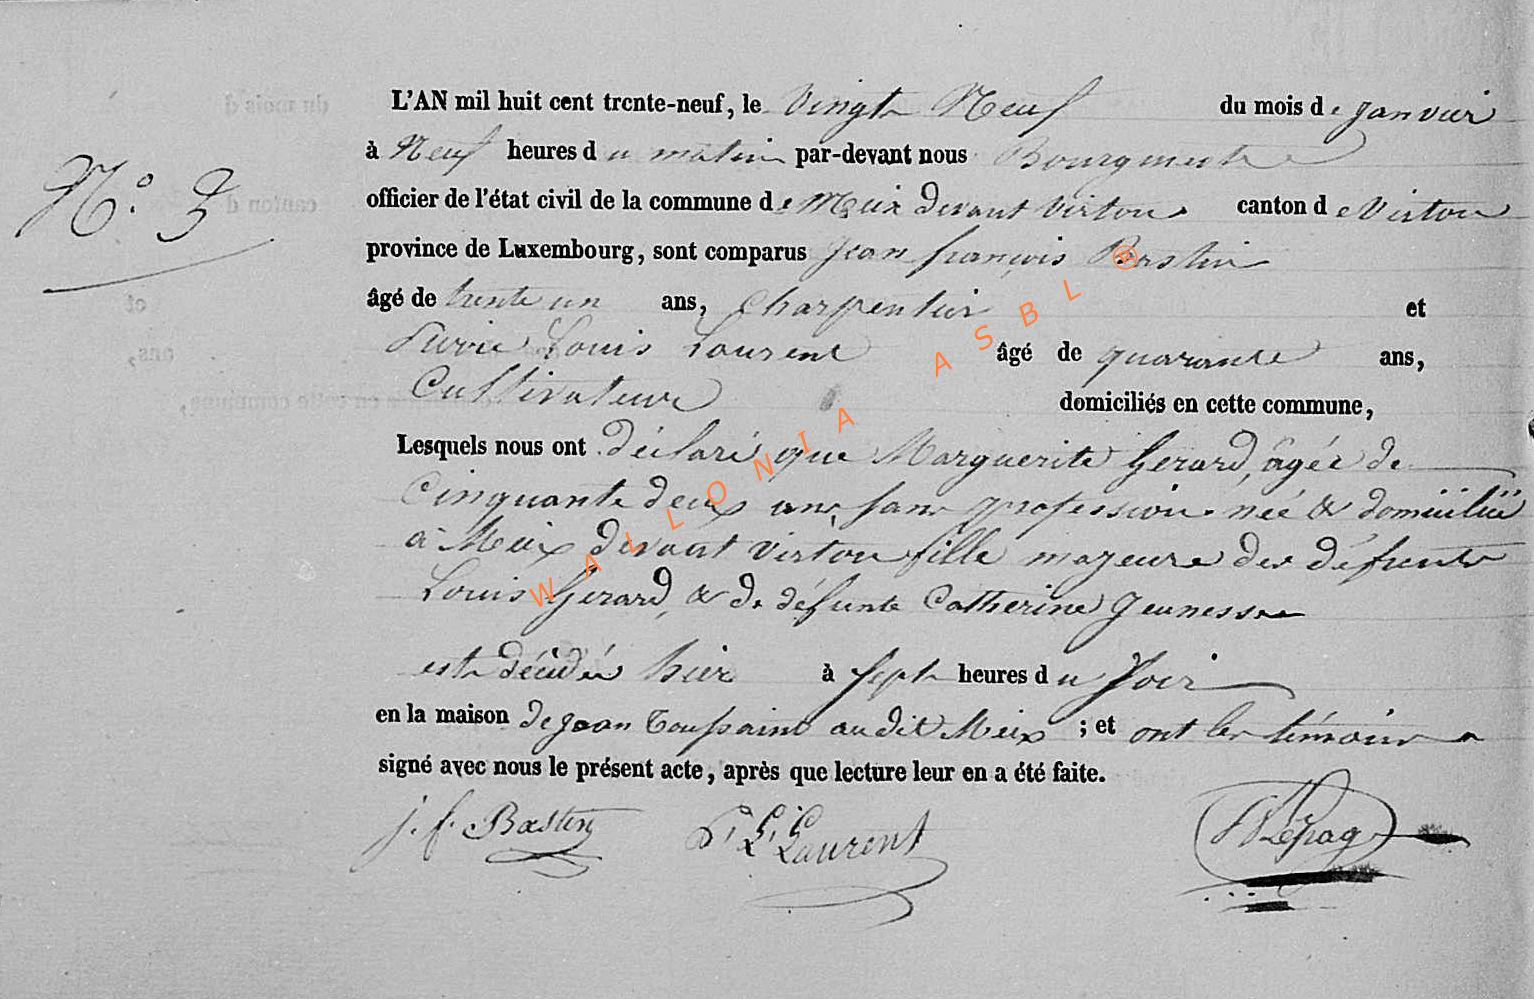 L'AN mil huit cent trente-neuf, le Vingt Neuf du mois de janvier
N° 3
à Neuf heures du matin par-devant nous Bourgmestre
officier de l'état civil de la commune de Meix devant Virton canton de Virton
province de Luxembourg, sont comparus Jean françois Bastin
âgé de trente un ans, Charpentier et
Pierre Louis Laurent âgé de quarante ans,
Cultivateur domiciliés en cette commune,
Lesquels nous ont déclaré que Marguerite Gerard, âgée de
Cinquante deux ans, sans profession née & domiciliée
à Meix devant Virton fille majeure des défunts
Louis Gerard, & de défunte Catherine Jeunesse
est décédée hier à sept heures du soir
en la maison de jean Toussaint au dit Meix ; et ont les témoins
signé avec nous le présent acte, après que lecture leur en a été faite.
j. f. Bastin P. L. Laurent Lepage
WALLONIA ASBL ®